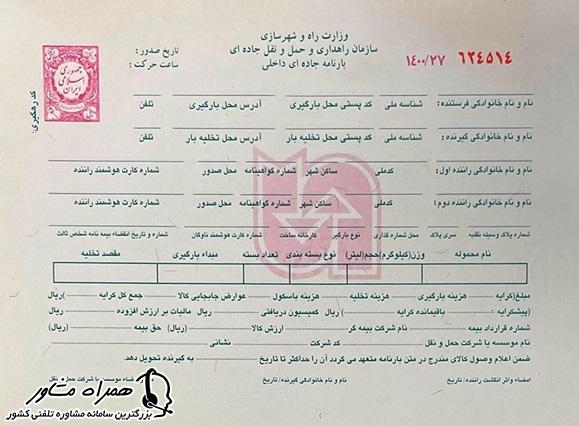 وزارت راه و شهرسازی
سازمان راهداری و حمل و نقل جاده ای
بارنامه جاده ای داخلی
۶۲۴۵۱۴
۱۴۰۰/۲۷
تاریخ صدور :
ساعت حرکت :
جمهوری
اسلامی
ایران
کد رهگیری:
نام و نام خانوادگی فرستنده: شناسه ملی کد پستی محل بارگیری آدرس محل بارگیری تلفن
نام و نام خانوادگی گیرنده: شناسه ملی کد پستی محل تخلیه بار آدرس محل تخلیه بار تلفن
نام و نام خانوادگی راننده اول: کدملی ساکن شهر شماره گواهینامه محل صدور شماره کارت هوشمند راننده
نام و نام خانوادگی راننده دوم: کدملی ساکن شهر شماره گواهینامه محل صدور شماره کارت هوشمند راننده
شماره پلاک وسیله نقلیه سری پلاک محل شماره گذاری نوع بارگیر کارخانه ساخت شماره کارت هوشمند ناوگان شماره و تاریخ انقضاء بیمه نامه شخص ثالث
نام محموله وزن(کیلوگرم)حجم(لیتر) نوع بسته بندی تعداد بسته مبداء بارگیری مقصد تخلیه
مبلغ(کرایه هزینه بارگیری هزینه تخلیه هزینه باسکول عوارض جابجایی کالا جمع کل کرایه )ریال
(پیشکرایه باقیمانده کرایه )ریال کمیسیون دریافتی )ریال مالیات بر ارزش افزوده )ریال
شماره قرارداد بیمه نام شرکت بیمه گر ارزش کالا )ریال حق بیمه )ریال
نام موسسه یا شرکت حمل و نقل کد شرکت نشانی
ضمن اعلام وصول کالای مندرج در متن بارنامه متعهد می گردد آن را حداکثر تا تاریخ به گیرنده تحویل دهد.
امضاء واثر انگشت راننده/تاریخ نام و نام خانوادگی گیرنده/تاریخ ضاء موسسه یا شرکت حمل و نقل
همراه مشاور
بزرگترین سامانه مشاوره تلفنی کشور